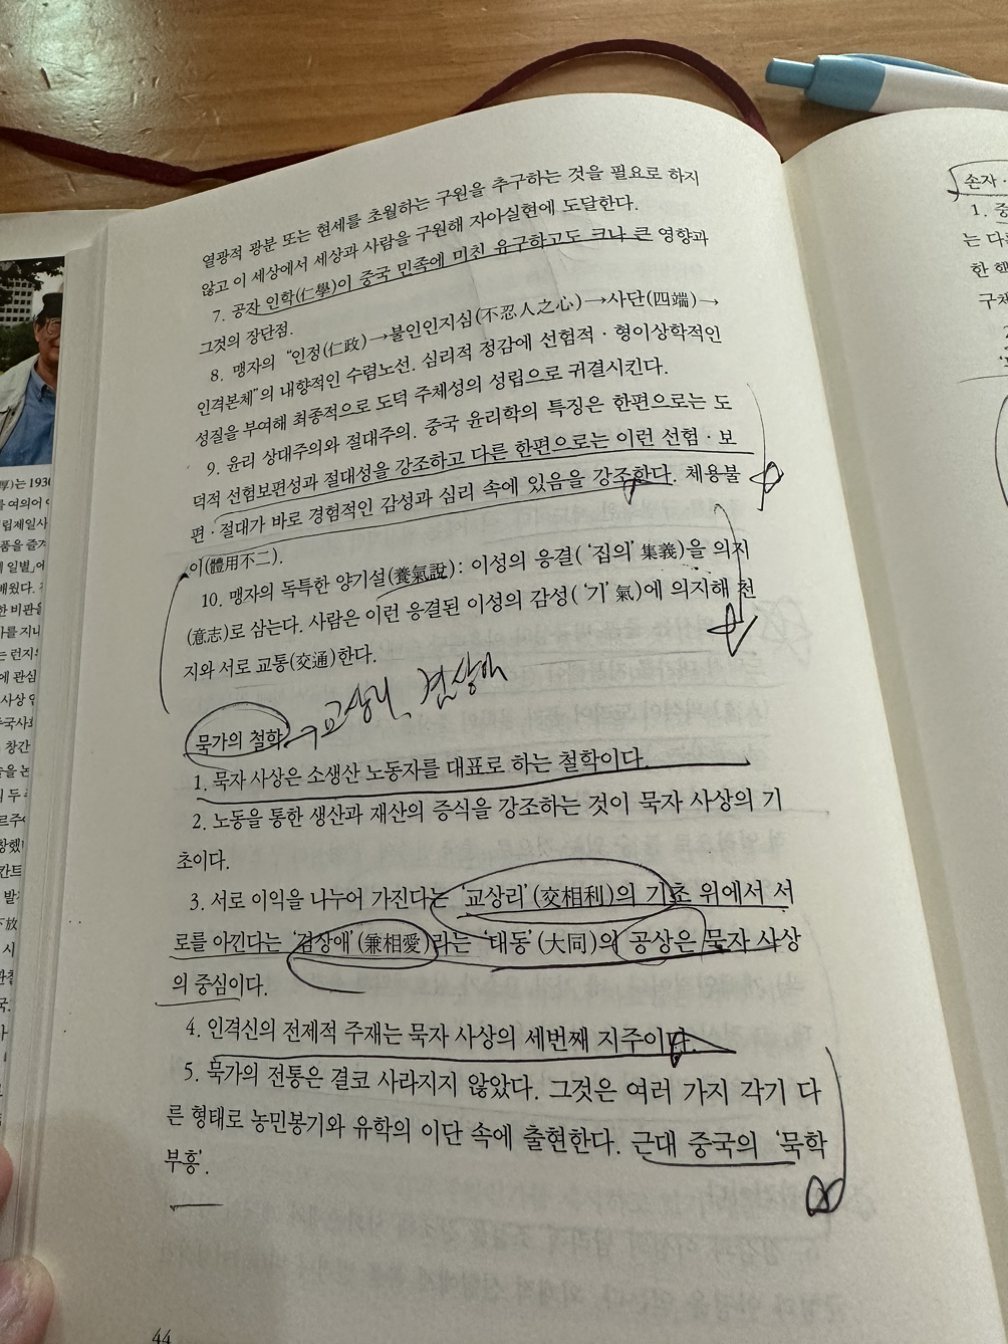 열광적 광분 또는 현세를 초월하는 구원을 추구하는 것을 필요로 하지
않고 이 세상에서 세상과 사람을 구원해 자아실현에 도달한다.
7. 공자 인학(仁學)이 중국 민족에 미친 유구하고도 크나 큰 영향과
그것의 장단점.
8. 맹자의 “인정(仁政)→불인인지심(不忍人之心)→사단(四端)→
인격본체”의 내향적인 수렴노선. 심리적 정감에 선험적·형이상학적인
성질을 부여해 최종적으로 도덕 주체성의 성립으로 귀결시킨다.
9. 윤리 상대주의와 절대주의. 중국 윤리학의 특징은 한편으로는 도
덕적 선험보편성과 절대성을 강조하고 다른 한편으로는 이런 선험·보
편·절대가 바로 경험적인 감성과 심리 속에 있음을 강조한다. 체용불
이(體用不二).
10. 맹자의 독특한 양기설(養氣說): 이성의 응결(‘집의’集義)을 의지
(意志)로 삼는다. 사람은 이런 응결된 이성의 감성(‘기’氣)에 의지해 천
지와 서로 교통(交通)한다.
교상리, 겸상애
묵가의 철학
1. 묵자 사상은 소생산 노동자를 대표로 하는 철학이다.
2. 노동을 통한 생산과 재산의 증식을 강조하는 것이 묵자 사상의 기
초이다.
3. 서로 이익을 나누어 가진다는 ‘교상리’(交相利)의 기초 위에서 서
로를 아낀다는 ‘겸상애’(兼相愛)라는 ‘대동’(大同)의 공상은 묵자 사상
의 중심이다.
4. 인격신의 전제적 주재는 묵자 사상의 세번째 지주이다.
5. 묵가의 전통은 결코 사라지지 않았다. 그것은 여러 가지 각기 다
른 형태로 농민봉기와 유학의 이단 속에 출현한다. 근대 중국의 ‘묵학
부흥’.
44
손자·
1. 중
는 다
한 핵
구체